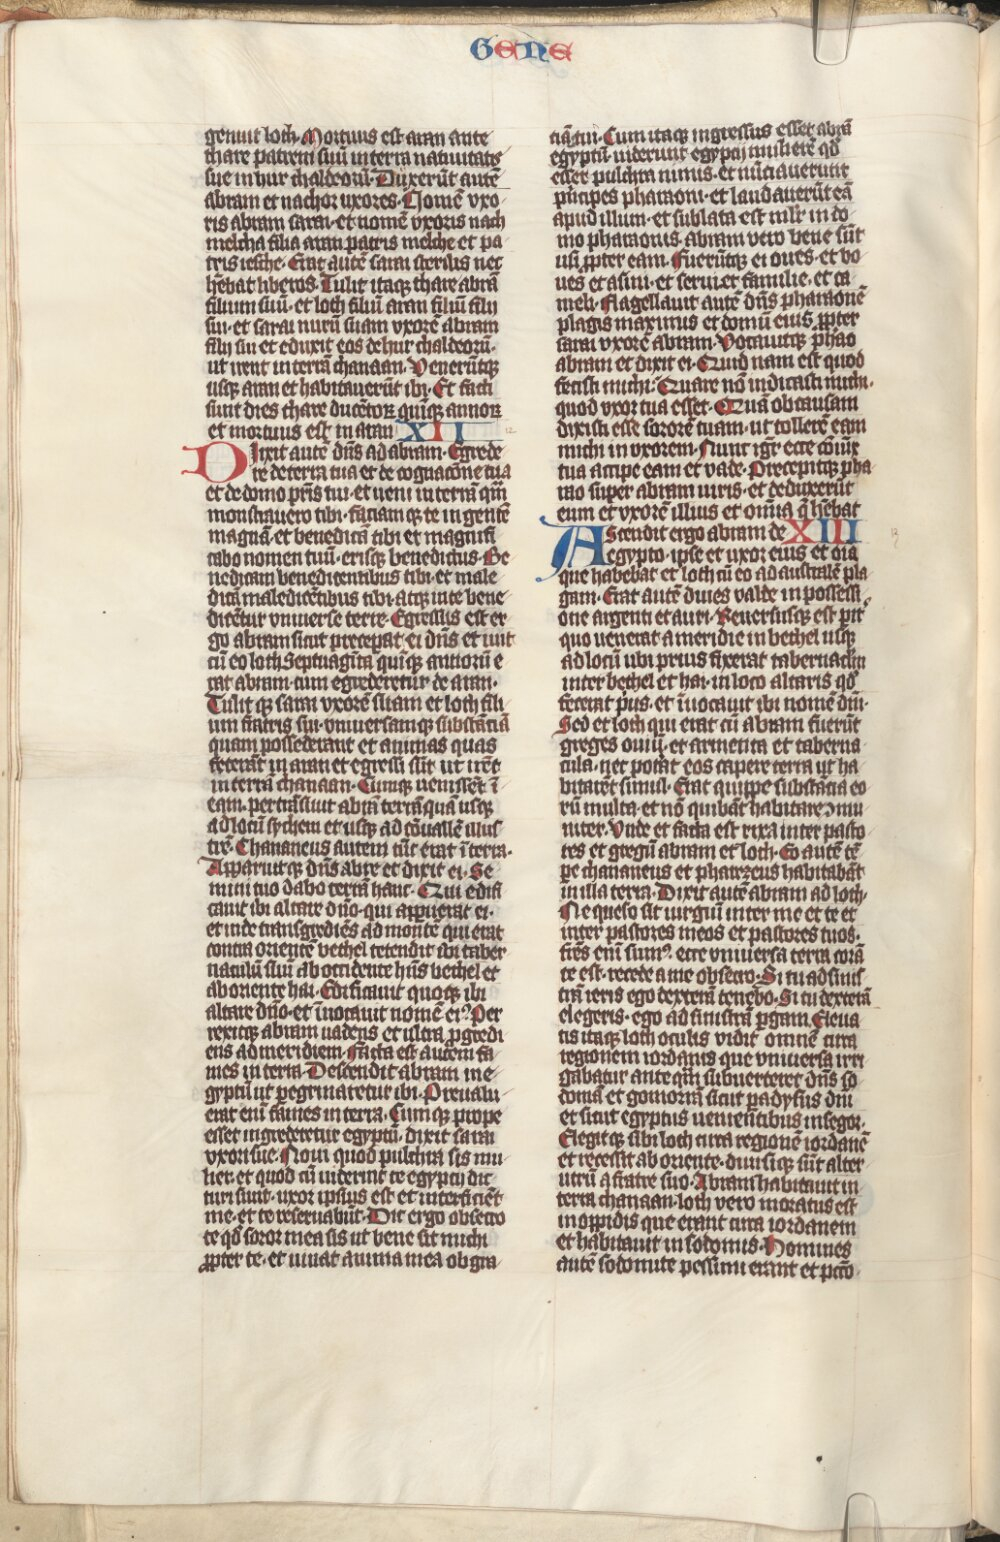 GENE
genuit loth. Mortuus est aran ante
thare patrem suū in terra natiuitatis
sue in hur chaldeorū. Duxerūt autē
abram et nachor uxores. Nomē vxo
ris abram sarai. et nomē vxoris nach
melcha filia aran patris melche et pa
tris iesche. Erat autē sarai sterilis nec
hēbat liberos. Tulit itaqꝫ thare abrā
filium suū. et loth filiū aran filiū filij
sui. et sarai nurū suam vxorē abram
filij sui et eduxit eos de hur chaldeorū.
ut irent in terrā chanaan. Venerūtqꝫ
usqꝫ aran et habitauerūt ibi. Et facti
sunt dies thare ducētoꝝ quīqꝫ annoꝝ
et mortuus est in aran XII
Dixit autē dn̄s ad abram. Egrede
re de terra tua et de cognacōne tua
et de domo pr̄is tui. et ueni in terrā qm̄
monstrauero tibi. faciam qꝫ te in gentē
magnā. et benedicā tibi et magnifi
cabo nomen tuū. erisqꝫ benedictus. Be
nedicam benedicentibus tibi. et male
dicā maledicētibus tibi. atqꝫ in te bene
dicētur vniuerse terre. Egressus est er
go abram sicut preceperat ei dn̄s et iuit
cū eo loth. Septuagīta quīqꝫ annorū e
rat abram. cum egrederetur de aran.
Tulit qꝫ sarai vxorē suam et loth fili
um fratris sui. vniuersamqꝫ substāciā
quam possederant et animas quas
fecerāt in aran et egressi sūt ut irēt
in terrā chanaan. Cumqꝫ uenissēt ī
eam. pertrāsiuit abrā terrā quā usqꝫ
ad locū sychem et usqꝫ ad cōuallē illus
trē. Chananeus autem tūc erat ī terra.
Apparuit qꝫ dn̄s abre et dixit ei. Se
mini tuo dabo terrā hanc. Qui edifi
cauit ibi altare dn̄o. qui apparuerat ei.
et inde transgrediēs ad montē qui erat
contra orientē bethel tetendit ibi taber
naculū suū ab occidente hn̄s bethel et
ab oriente hai. Edificauit quoqꝫ ibi
altare dn̄o. et īuocauit nomē eiꝰ. Per
rexitqꝫ abram uadens et ultra ꝓgredi
ens ad meridiem. Facta est autem fa
mes in terra. Descendit abram in e
gyptū ut peregrinaretur ibi. Preualu
erat enī fames in terra. Cum qꝫ prope
esset ingrederetur egyptū. dixit sarai
vxori sue. Noui quod pulchra sis mu
lier. et quod cū uiderint te egyptij dic
turi sunt. uxor ipsius est et interficiēt
me. et te reseruabūt. Dic ergo obsecro
te qd̄ soror mea sis ut bene sit michi
ꝓpter te. et uiuat anima mea ob gra
ciā tui. Cum itaqꝫ ingressus esset abrā
egyptū. uiderunt egyptij mulierē qd̄
esset pulchra nimis. et nūciauerunt
prīcipes pharaoni. et laudauerūt eā
apud illum. et sublata est mlr̄ in do
mo pharaonis. abram vero bene sūt
usi ꝓpter eam. Fuerūtqꝫ ei oues. et bo
ues et asini. et serui et familie. et ca
meli. Flagellauit autē dn̄s pharaonē
plagis maximis et domū eius ꝓpter
sarai vxorē abram. Vocauitqꝫ phao
abram et dixit ei. Quid nam est quod
fecisti michi. Quare nō indicasti michi.
quod vxor tua esset. Quā ob causam
dixisti esse sororē tuam. ut tollerē eam
michi in vxorem. Nunc igr̄ ecce cōiux
tua accipe eam et vade. Precepitqꝫ pha
rao super abram uiris. et deduxerūt
eum et vxorē illius et omīa q̄ hēbat
Ascendit ergo abram de XIII
egypto. ipse et uxor eius et oīa
que habebat et loth cū eo ad australē pla
gam. Erat autē diues valde in possessi
one argenti et auri. Reuersusqꝫ est ꝑ it
quo uenerat a meridie in bethel usqꝫ
ad locū ubi prius fixerat tabernaclm
inter bethel et hai. in loco altaris qd̄
fecerat prius. et īuocauit ibi nomē dn̄i.
Sed et loth qui erat cū abram fuerūt
greges ouiū. et armenta et taberna
cula. nec poterāt eos capere terra ut ha
bitarēt simul. Erat quippe substācia eo
rū multa. et nō quibāt habitare ꝯmu
niter. Vnde et facta est rixa inter pasto
res et gregū abram et loth. Eo autē tē
pe chananeus et pharezeus habitabāt
in illa terra. Dixit autē abram ad loth.
Ne queso sit iurgiū inter me et te et
inter pastores meos et pastores tuos.
fr̄es enī sumꝰ. ecce vniuersa terra corā
te est. recede a me obsecro. Si tu ad sinis
trā ieris ego dexterā tenebo. Si tu dexterā
elegeris. ego ad sinistrā ꝑgam. Eleua
tis itaqꝫ loth oculis vidit omnē circa
regionem iordanis que vniuersa irri
gabatur ante qm̄ subuerteret dn̄s so
domā et gomorrā sicut paradysus dn̄i
et sicut egyptus uenientibus in segor.
Elegit qꝫ sibi loth circa regionē iordanē
et recessit ab oriente. diuisi qꝫ sūt alter
utrū a fratre suo. Abram habitauit in
terra chanaan. loth vero moratus est
in oppidis que erant circa iordanem
et habitauit in sodomis. Homines
autē sodomite pessimi erant et pcc̄o